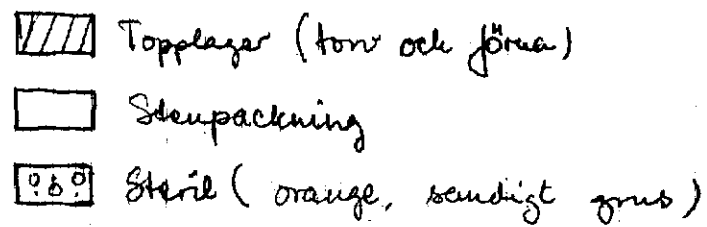 Topplager (torv och förna)
Stenpackning
Steril (orange, sandigt grus)